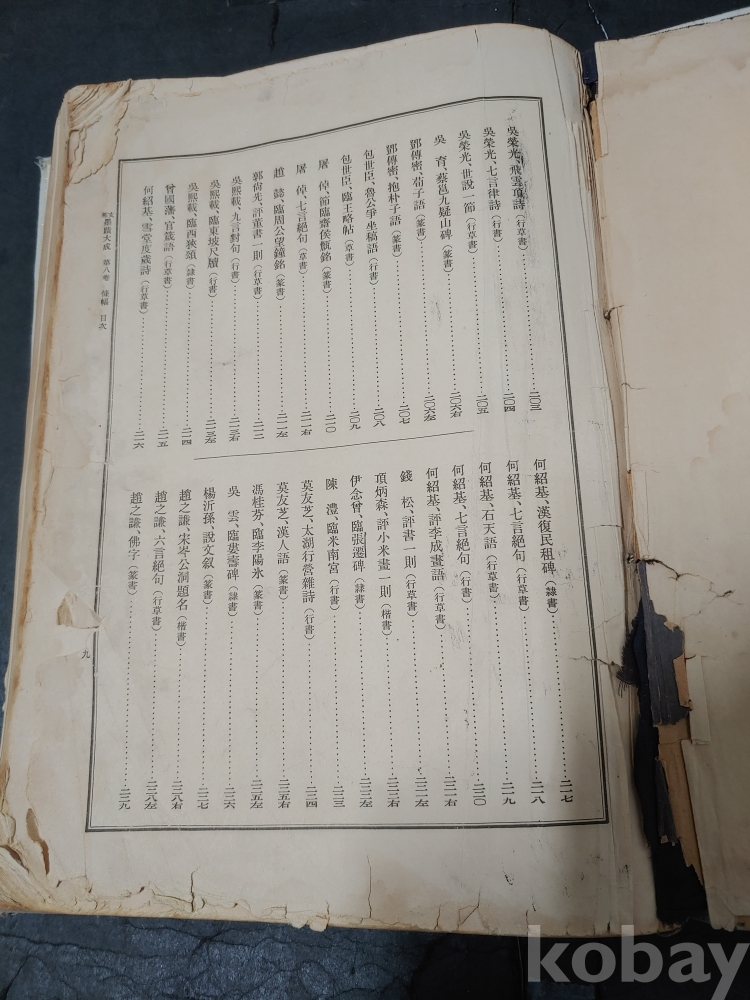 吳榮光、飛雲頂詩(行草書)……二〇三
吳榮光、七言律詩(行書)……二〇四
吳榮光、世說一節(行草書)……二〇五
吳育、蔡邕九疑山碑(篆書)……二〇六右
鄧傳密、荀子語(篆書)……二〇六左
鄧傳密、抱朴子語(篆書)……二〇七
包世臣、魯公爭坐稿語(草書)……二〇八
包世臣、臨王略帖(草書)……二〇九
屠倬、節臨齋侯甔銘(篆書)……二一〇
屠倬、七言絕句(草書)……二一一右
趙懿、臨周公望鐘銘(篆書)……二一一左
郭尙先、評董書一則(行草書)……二一二
吳熙載、九言對句(行書)……二一三右
吳熙載、臨東坡尺牘(行書)……二一三左
吳熙載、臨西狹頌(隷書)……二一四
曾國藩、官箴語(行草書)……二一五
何紹基、雪堂度歲詩(行草書)……二一六
何紹基、漢復民租碑(隷書)……二一七
何紹基、七言絕句(行草書)……二一八
何紹基、石天語(行草書)……二一九
何紹基、七言絕句(行書)……二二〇
何紹基、評李成畫語(行草書)……二二一右
錢松、評書一則(行草書)……二二一左
項炳森、評小米畫一則(楷書)……二二二右
伊念曾、臨張遷碑(隷書)……二二二左
陳澧、臨米南宮(行書)……二二三
莫友芝、太湖行營雜詩(行書)……二二四
莫友芝、漢人語(篆書)……二二五右
馮桂芬、臨李陽氷(篆書)……二二五左
吳雲、臨婁壽碑(隷書)……二二六
楊沂孫、說文叙(篆書)……二二七
趙之謙、宋岑公洞題名(楷書)……二二八右
趙之謙、六言絕句(行草書)……二二八左
趙之謙、佛字(篆書)……二二九
墨蹟大成 第八卷 條幅 目次
九
kobay